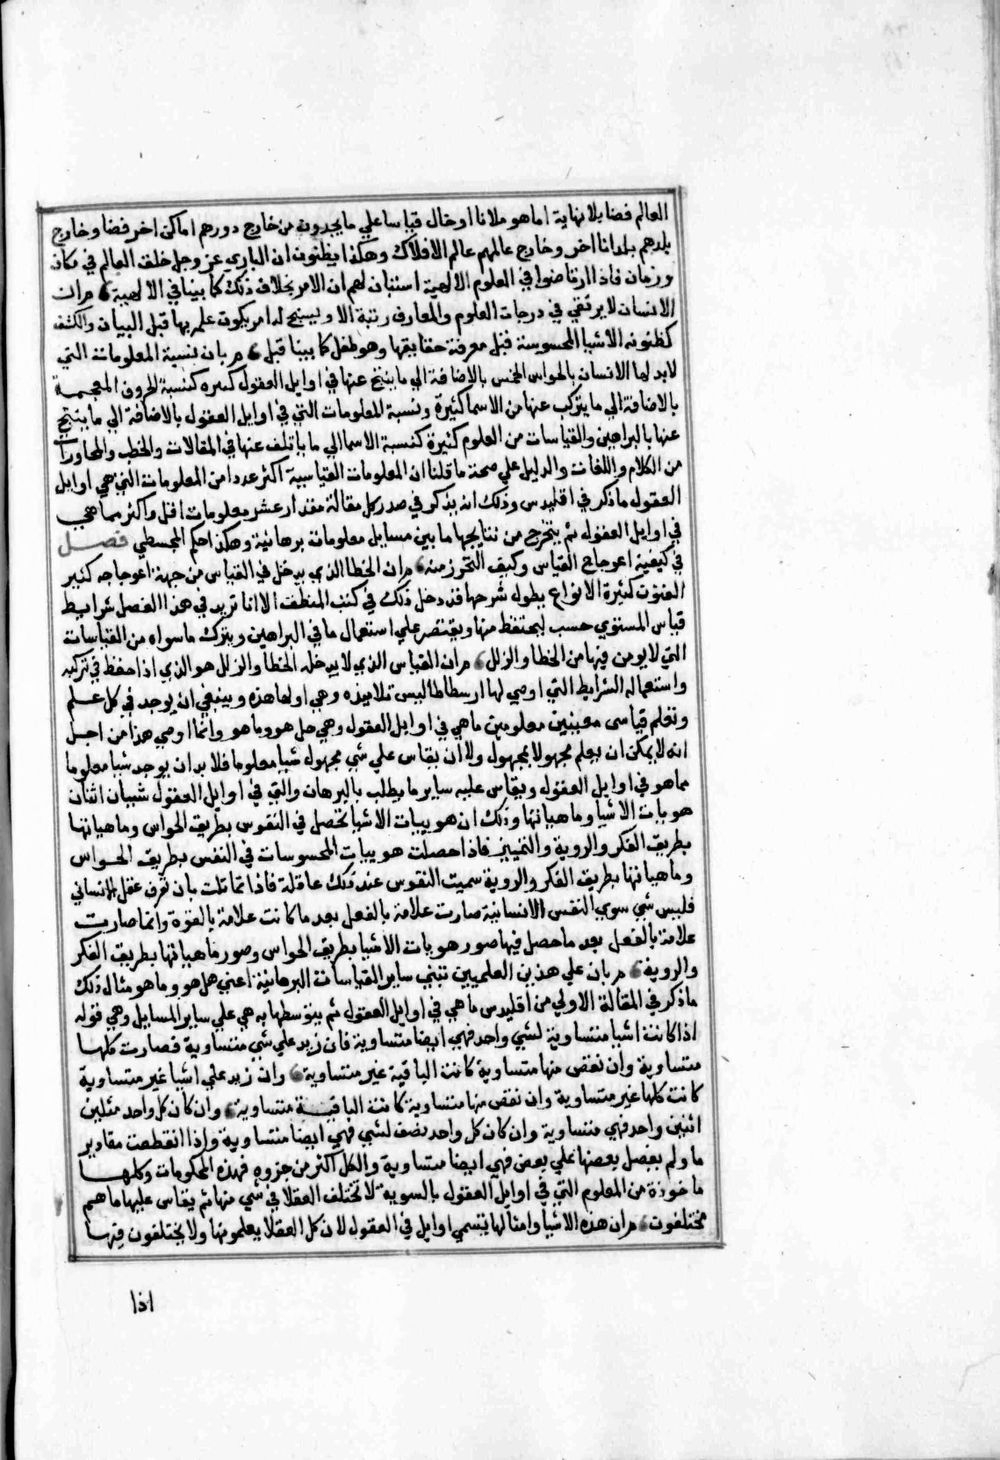 العالم فضا بلا نهاية اما هو ملانا او خال قياسا علي ما يجدون من خارج دورهم اماكن اخر فضا وخارج
بلدهم بلدانا اخر وخارج عالمهم عالم الافلاك وهكذا يظنون ان الباري عز وجل خلق العالم في مكان
وزمان فاذا ارتاضوا في العلوم الالهية استبان لهم ان الامر بخلاف ذلك كما بينا في الالهية ان
الانسان لا يرتقي في درجات العلوم والمعارف رتبة الا ويسنح له امر يكون علمه بها قبل البيان والكشف
كظنونه الاشيا المحسوسة قبل معرفة حقايقها وهو طفل كما بينا قبل بان نسبة المعلومات التي
لا بد لها الانسان بالحواس الخمس بالاضافة الي ما ينتج عنها في اوايل العقول كنسبة الحروف المعجمة
بالاضافة الي ما يتركب عنها من الاسما كثيرة ونسبة المعلومات التي في اوايل العقول بالاضافة الي ما ينتج
عنها بالبراهين والقياسات من العلوم كثيرة كنسبة الاسما الي ما ياتلف عنها في المقالات والخطب والمحاورات
من الكلام واللغات والدليل علي صحة ما قلنا ان المعلومات القياسية اكثر عددا من المعلومات التي هي اوايل
العقول ما ذكر في اقليدس وذلك انه يذكر في صدر كل مقالة مقدار عشر معلومات اقل واكثر مما هي
في اوايل العقول ثم يتخرج من نتايجها ما بين مسايل معلومات برهانية وهكذا حكم المجسطي فصل
في كيفية اعوجاج القياس وكيف التحرز منه ان الخطا الذي يدخل في القياس من جهة اعوجاجه كثير
الفنون كثيرة الانواع يطول شرحها قد دخل ذلك في كتب المنطق الا انا نريد في هذا الفصل شرايط
قياس المستوي حسب ليحتفظ منها ويقتصر علي استعمال ما في البراهين ويترك ما سواه من القياسات
التي لا يومن فيها من الخطا والزلل ان القياس الذي لا يدخله الخطا والزلل هو الذي اذا حفظ في تركيبه
واستعماله الشرايط التي اوصي لها ارسطاطاليس تلاميذه وهي اولها هذه وينبغي ان يوجد في كل علم
وتعلم قياسي معنيين معلومين ما هي في اوايل العقول وهي هل هو وما هو وانما اوصي هذا من اجل
انه لا يمكن ان يعلم مجهولا بمجهول ولا ان يقاس علي شي مجهول شيا معلوما فلا بد ان يوجد شيا معلوما
مما هو في اوايل العقول ويقاس عليه ساير ما يطلب بالبرهان والتي في اوايل العقول شييان اثنان
هويات الاشيا وماهياتها وذلك ان هويات الاشيا تحصل في النفوس بطريق الحواس وماهياتها
بطريق الفكر والروية والتمييز فاذا حصلت هويات المحسوسات في النفس بطريق الحواس
وماهياتها بطريق الفكر والروية سميت النفوس عند ذلك عاقلة فاذا تماثلت بان تعرف عقل الانساني
فليس شي سوي النفس الانسانية صارت علامة بالفعل بعد ما كانت علامة بالقوة وانما صارت
علامة بالفعل بعد ما حصل فيها صور هويات الاشيا بطريق الحواس وصور ماهياتها بطريق الفكر
والروية بان علي هذين العلمين تبني ساير القياسات البرهانية اعني هل هو وما هو مثال ذلك
ما ذكر في المقالة الاولي من اقليدس ما هي في اوايل العقول ثم يتوسطها به هي علي ساير المسايل وهي قوله
اذا كانت اشيا متساوية لشي واحد فهي ايضا متساوية فان زيد علي شي متساوية فصارت كلها
متساوية وان نقص منها متساوية كانت الباقية غير متساوية وان زيد علي اشيا غير متساوية
كانت كلها غير متساوية وان نقص منها متساوية كانت الباقية متساوية وان كان كل واحد مثلين
اثنين واحد فهي متساوية وان كان كل واحد نصف لشي فهي ايضا متساوية واذا انقطعت مقادير
ما ولم يفصل بعضها علي بعض فهي ايضا متساوية والكل اكثر من جزوه فهذه المحكومات وكلها
ماخوذة من المعلوم التي في اوايل العقول بالسوية لا تختلف العقلا في شي منها ثم يقاس عليها ما هم
مختلفون ان هذه الاشيا وامثالها تتسمي اوايل في العقول لان كل العقلا يعلمونها ولا يختلفون فيها
اذا